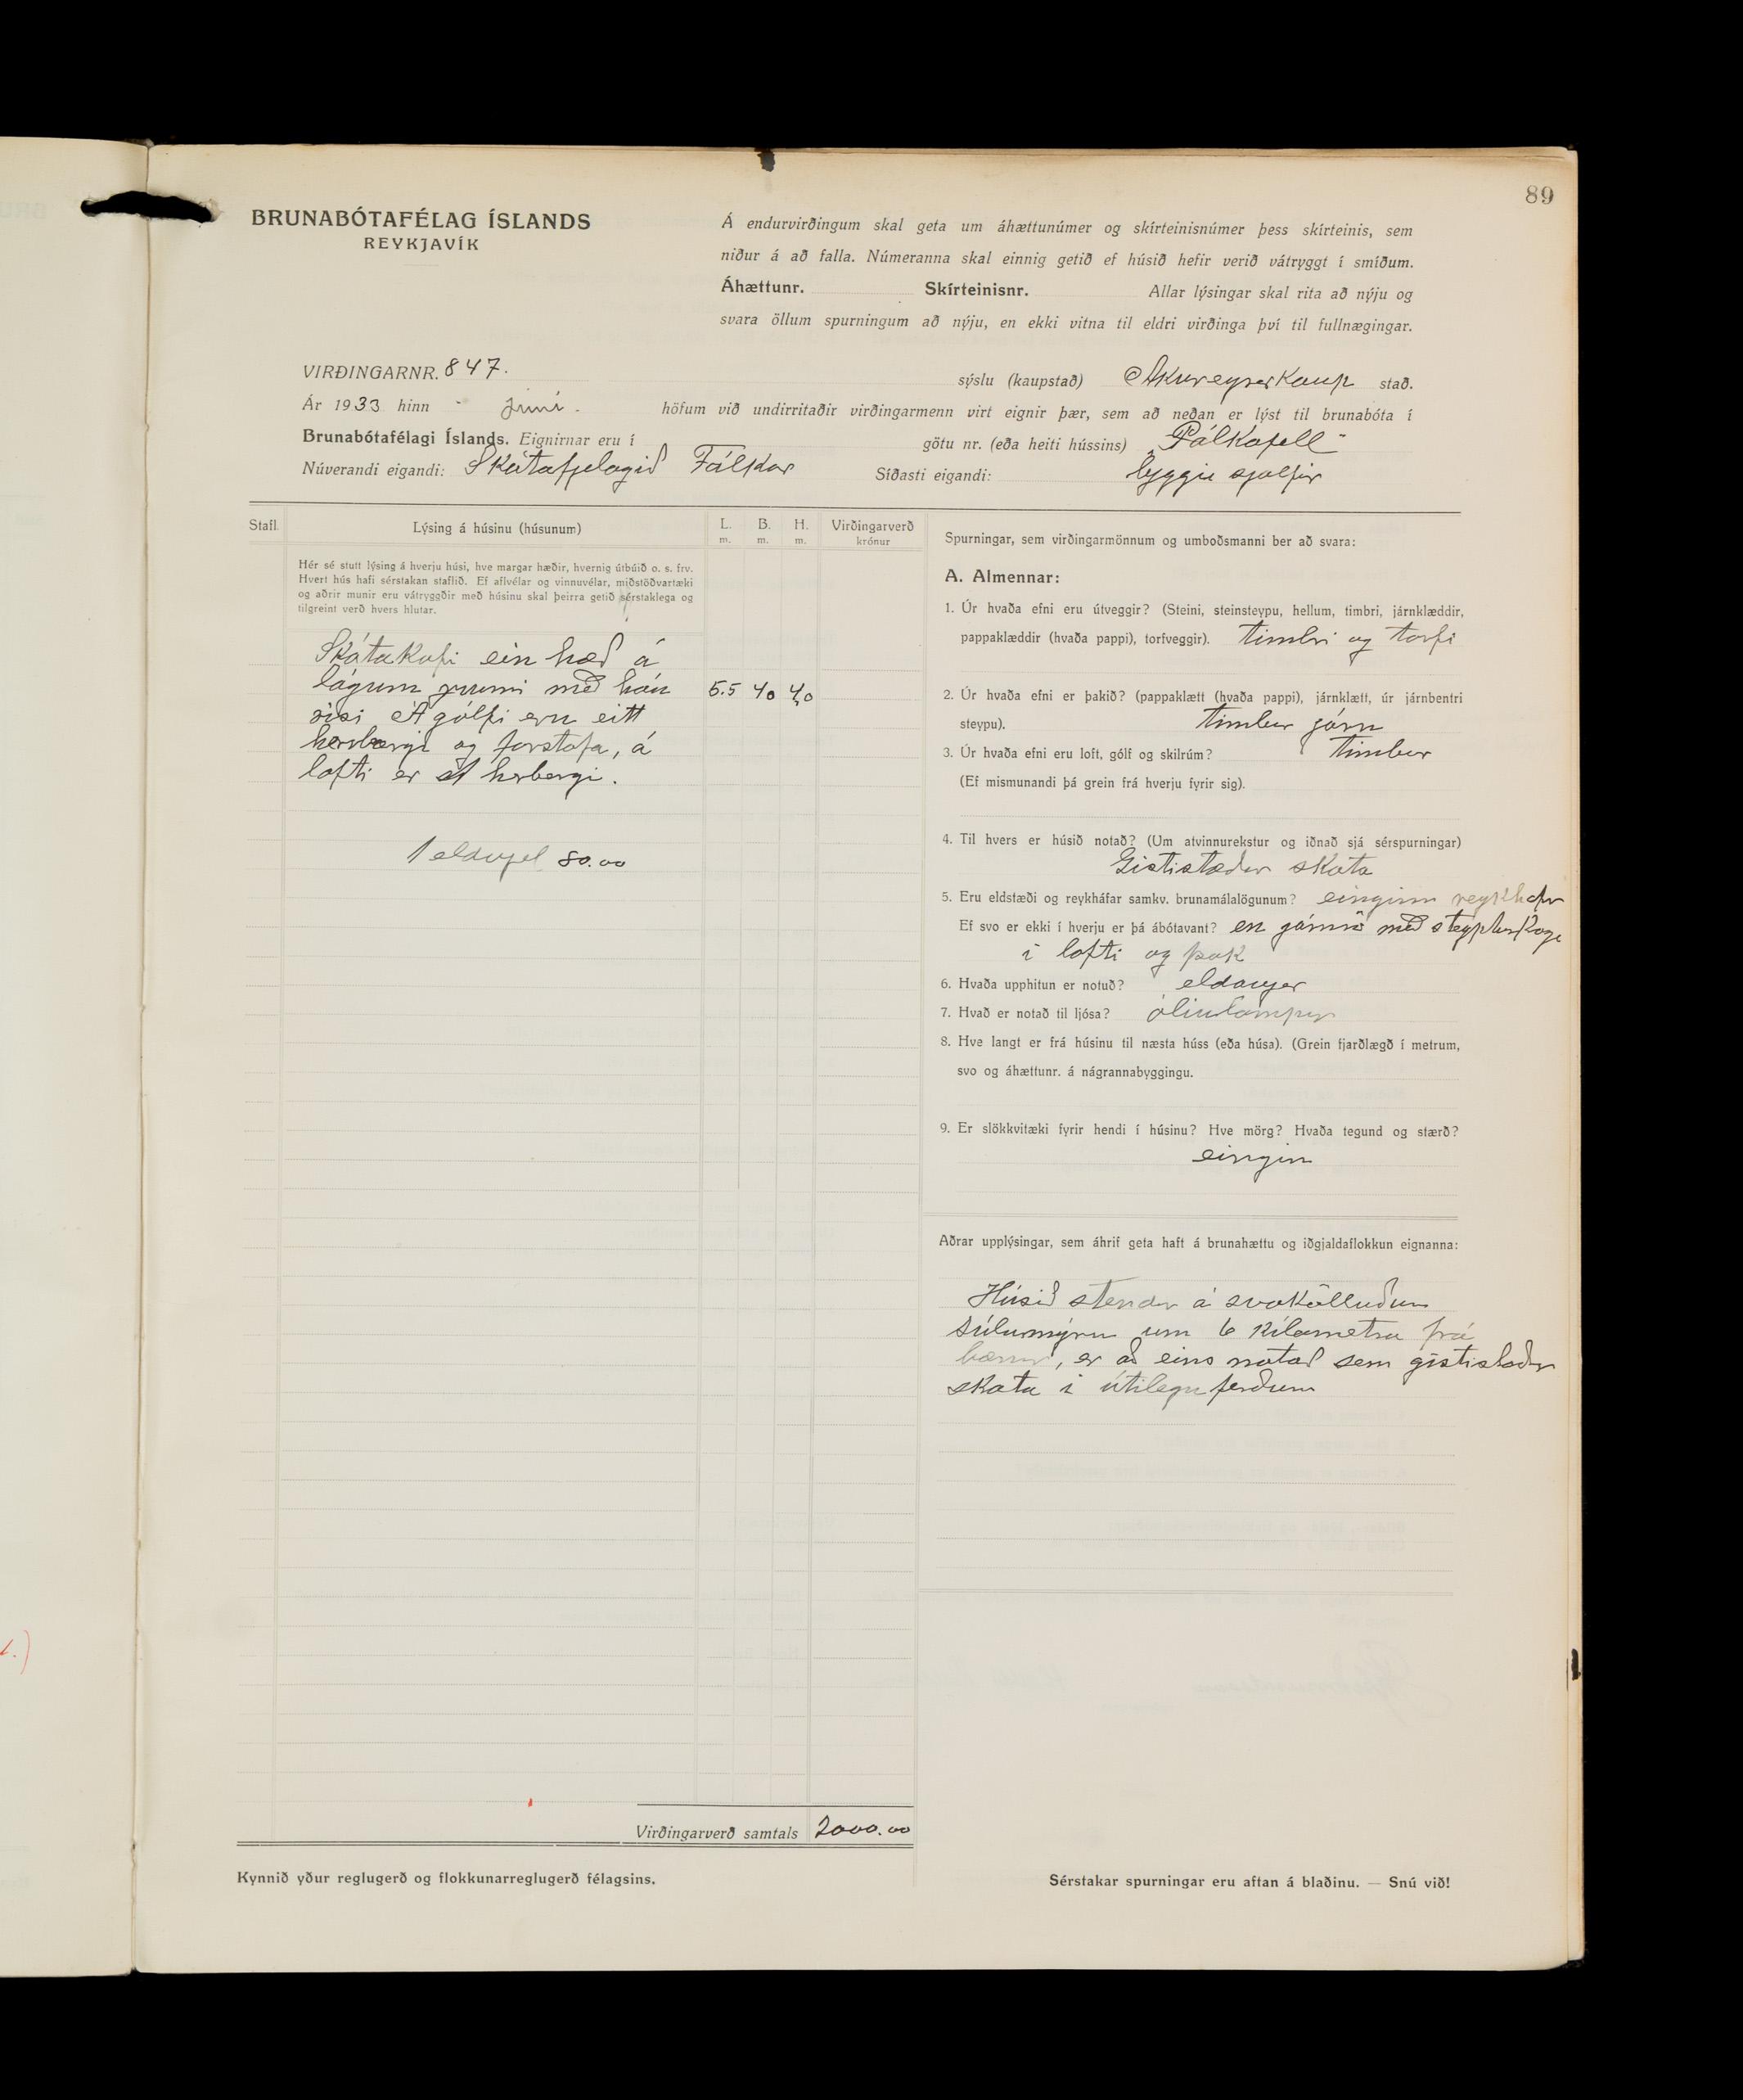 89
BRUNABÓTAFÉLAG ÍSLANDS
REYKJAVÍK
Á endurvirðingum skal geta um áhættunúmer og skírteinisnúmer þess skírteinis, sem
niður á að falla. Númeranna skal einnig getið ef húsið hefir verið vátryggt í smíðum.
Áhættunr. Skírteinisnr. Allar lýsingar skal rita að nýju og
svara öllum spurningum að nýju, en ekki vitna til eldri virðinga því til fullnægingar.
VIRÐINGARNR. 847. sýslu (kaupstað) Akureyrarkaup stað.
Ár 1933 hinn - júní. höfum við undirritaðir virðingarmenn virt eignir þær, sem að neðan er lýst til brunabóta í
Brunabótafélagi Íslands. Eignirnar eru í götu nr. (eða heiti hússins) „Fálkafell"
Núverandi eigandi: Skátafjelagið Fálkar Síðasti eigandi: byggir sjálfir
Stafl. Lýsing á húsinu (húsunum) L. m. B. m. H. m. Virðingarverð krónur
Hér sé stutt lýsing á hverju húsi, hve margar hæðir, hvernig útbúið o. s. frv.
Hvert hús hafi sérstakan staflið. Ef aflvélar og vinnuvélar, miðstöðvartæki
og aðrir munir eru vátryggðir með húsinu skal þeirra getið sérstaklega og
tilgreint verð hvers hlutar.
Skátakofi ein hæð á
lágum grunni með háu 5.5 4.0 4,0
risi Á gólfi eru eitt
herbergi og forstofa, á
lofti er eitt herbergi.
1 eldavjel 80.00
Virðingarverð samtals 2000.00
Kynnið yður reglugerð og flokkunarreglugerð félagsins.
Spurningar, sem virðingarmönnum og umboðsmanni ber að svara:
A. Almennar:
1. Úr hvaða efni eru útveggir? (Steini, steinsteypu, hellum, timbri, járnklæddir,
pappaklæddir (hvaða pappi), torfveggir). timbri og torfi
2. Úr hvaða efni er þakið? (pappaklætt (hvaða pappi), járnklætt, úr járnbentri
steypu). timbur járn
3. Úr hvaða efni eru loft, gólf og skilrúm? timbur
(Ef mismunandi þá grein frá hverju fyrir sig).
4. Til hvers er húsið notað? (Um atvinnurekstur og iðnað sjá sérspurningar)
Gististaður skáta
5. Eru eldstæði og reykháfar samkv. brunamálalögunum? einginn reykháfur
Ef svo er ekki í hverju er þá ábótavant? en með
í lofti og þak
6. Hvaða upphitun er notuð? eldavjer
7. Hvað er notað til ljósa? olíulampar
8. Hve langt er frá húsinu til næsta húss (eða húsa). (Grein fjarðlægð í metrum,
svo og áhættunr. á nágrannabyggingu.
9. Er slökkvitæki fyrir hendi í húsinu? Hve mörg? Hvaða tegund og stærð?
eingin
Aðrar upplýsingar, sem áhrif geta haft á brunahættu og iðgjaldaflokkun eignanna:
Húsið stendur á svokölluðum
Súlumýrum um 6 kílometra frá
bænum, er að eins notað sem gististaður
skáta í útileguferðum
Sérstakar spurningar eru aftan á blaðinu. — Snú við!